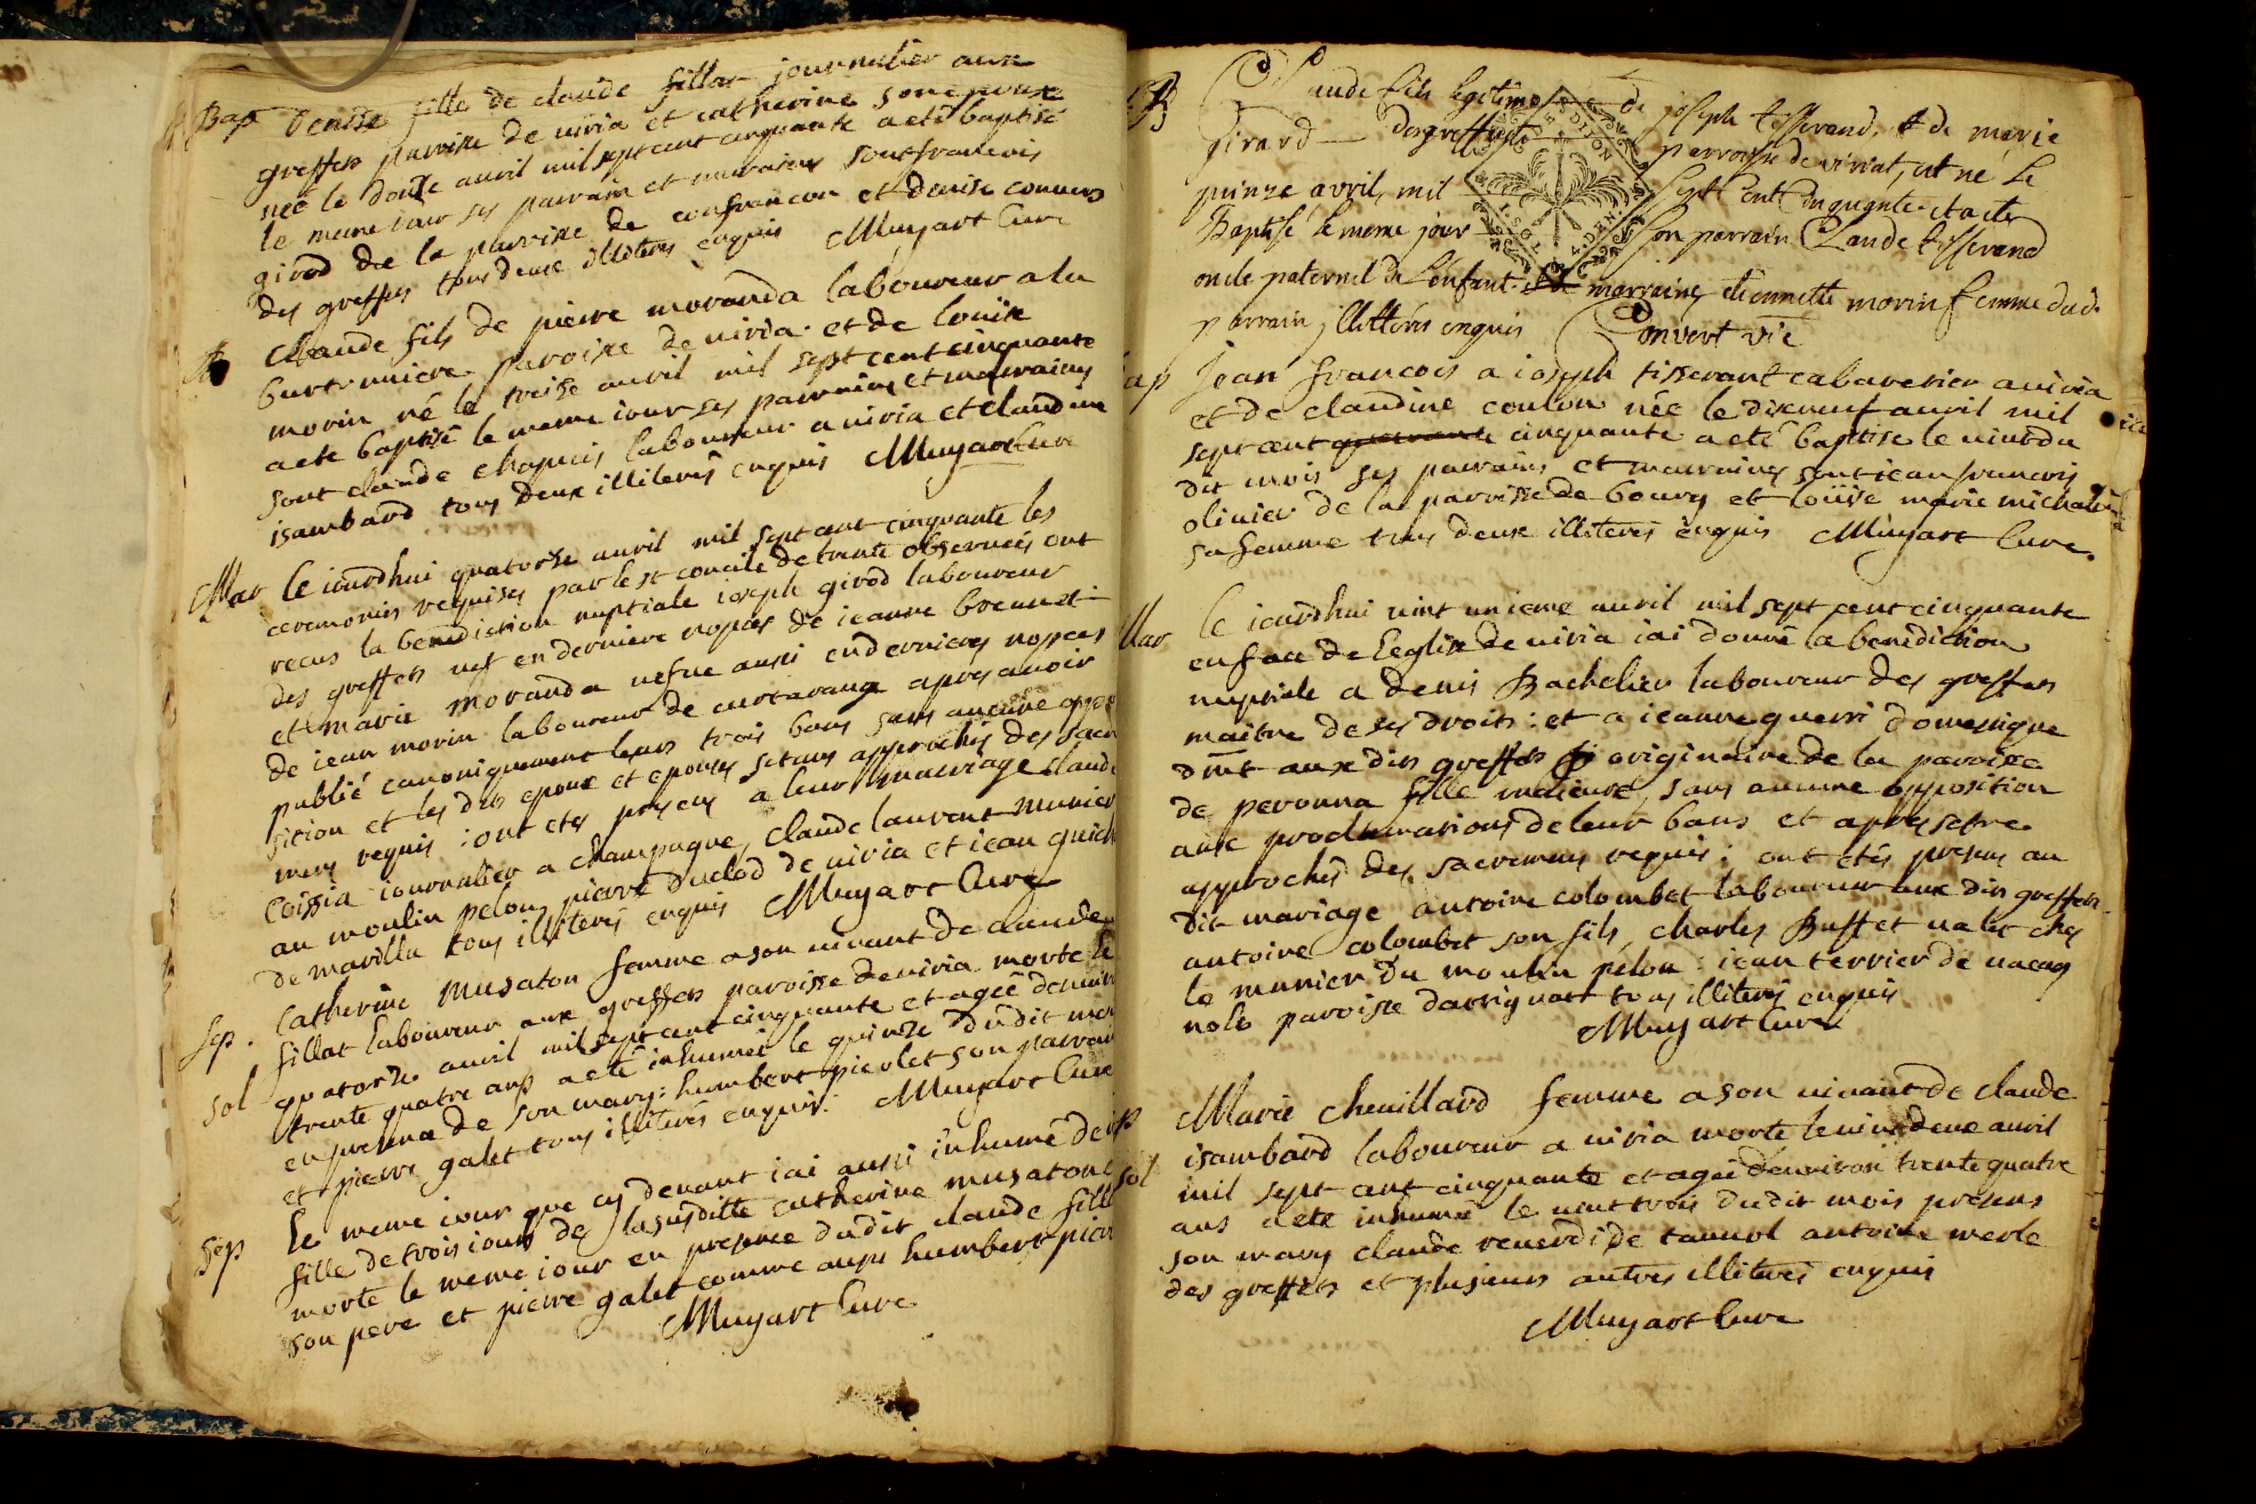 Bap Denise fille de claude fillat journalier aux
greffets paroisse de viria et catherine son epouse
née le douse avril mil sept cent cinquante a eté baptisé
le meme iour ses parrain et marraine sont francois
girod de la paroisse de confrancon et denise convers
des greffets tous deux illiteres enquis Muyart Curé
B claude fils de pierre moranda laboureur a la
curtemiere paroisse de viria et de louise
morin né le treise avril mil sept cent cinquante
a ete baptisé le meme iour ses parrains et marraines
sont claude chapuis laboureur a viria et claudine
isambard tous deux illiterés enquis Muyart Cure
Mar le iourdhui quatorse avril mil sept cent cinquante les
ceremonies requises par le st concile de trente observeés ont
recus la benediction nuptiale ioseph girod laboureur
des greffets vef en derniere nopces de ieanne brevet
et marie moranda vefve aussi en dernieres nopces
de iean morin laboureur de curtarange apres avoir
publié canoniquement leurs trois bans sans aucune oppo
sition et les dits epoux et epouses setans approchés des sacre
mens requis : ont etes presens a leur mariage claude
coissia iournalier a champagne, claude laurent munier
au moulin pelon, pierre duclod de viria et iean guich
de marilla tous illiterés enquis Muyart Cure
Sep. Catherine musaton femme a son vivant de claude
fillat laboureur aux greffets paroisse de viria morte le
sol quatorse avril mil sept cent cinquante et ageé denviron
trente quatre ans a eté inhumeé le quinse dudit mois
en presence de son mary : humbert pievlet son parrain
et pierre galet tous illiterés enquis. Muyart Cure
Sep le meme iour que cy devant iai aussi inhumé de
fille de trois iours de lasusditte catherine musaton
morte le meme iour en presence dudit claude fill
son pere et pierre galet comme aussi humbert piev
Muyart Cure
B Claude fils legitime de joseph tisserand, et de marie
girard des greffets parroisse de viriat, est né le
quinze avril, mil sept cent cinquante et a eté
Baptisé le meme jour son parrain Claude tisserand
oncle paternel de l'enfant. marraine etiennette morin femme dud.
parrain illitterés enquis Convert vic
Bap jean francois a ioseph tisserant cabaretier a viria
et de claudine coulon née le dixneuf avril mil
sept cent cinquante a eté baptise le vint du
dit mois ses parrains et marraines sont iean francois
olivier de la paroisse de bourg et loüise marie michalet
sa femme tous deux illiteres enquis Muyart Cure.
Mar le iourdhui vint unieme avril mil sept cent cinquante
en face de leglise de viria iai donné la benediction
nuptiale a denis Bachelier laboureur des greffets
maitre de ses droits : et a ieanne guerri domestique
dmt aux dits greffets originaire de la paroisse
de peronna fille maieure, sans aucune opposition
aux proclamations de leur bans et apres setre
approchés des sacremens requis : ont etés presens au
dit mariage antoine colombet laboureur aux dits greffets
antoine colombet son fils, charles Buffet valet ches
le munier du moulin pelon : iean terrier de vacag
nole paroisse dattignat tous illiterés enquis
Muyart Cure
Sep Marie chevillard femme a son vivant de claude
isambard laboureur a viria morte le vint deux avril
sol mil sept cent cinquante et ageé denviron trente quatre
ans a ete inhumé le vint trois dudit mois presens
son mary claude reverdi de tannol antoine merle
des greffets et plusieurs autres illiterés enquis
Muyart Cure